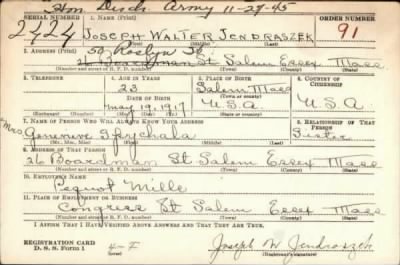 Hon Disch. Army 11-29-45
SERIAL NUMBER 1. NAME (Print) ORDER NUMBER
2424 JOSEPH WALTER JENDRASZEK 91
2. ADDRESS (Print) 50 Roslyn St
26 Boardman St Salem Essex Mass
(Number and street or R. F. D. number) (Town) (County) (State)
3. TELEPHONE 4. AGE IN YEARS 5. PLACE OF BIRTH 6. COUNTRY OF CITIZENSHIP
23 Salem Mass
DATE OF BIRTH (Town or county)
May 19, 1917 U.S.A U.S.A
(Exchange) (No.) (Mo.) (Day) (Yr.) (State or country)
7. NAME OF PERSON WHO WILL ALWAYS KNOW YOUR ADDRESS 8. RELATIONSHIP OF THAT PERSON
Mrs Genevieve Spychala Sister
(Mr., Mrs., Miss) (First) (Middle) (Last)
9. ADDRESS OF THAT PERSON
26 Boardman St Salem Essex Mass
(Number and street or R. F. D. number) (Town) (County) (State)
10. EMPLOYER'S NAME
Pequot Mills
11. PLACE OF EMPLOYMENT OR BUSINESS
Congress St Salem Essex Mass
(Number and street or R. F. D. number) (Town) (County) (State)
I AFFIRM THAT I HAVE VERIFIED ABOVE ANSWERS AND THAT THEY ARE TRUE.
REGISTRATION CARD
D. S. S. Form 1 4-F Joseph W Jendraszek
(Registrant's signature)